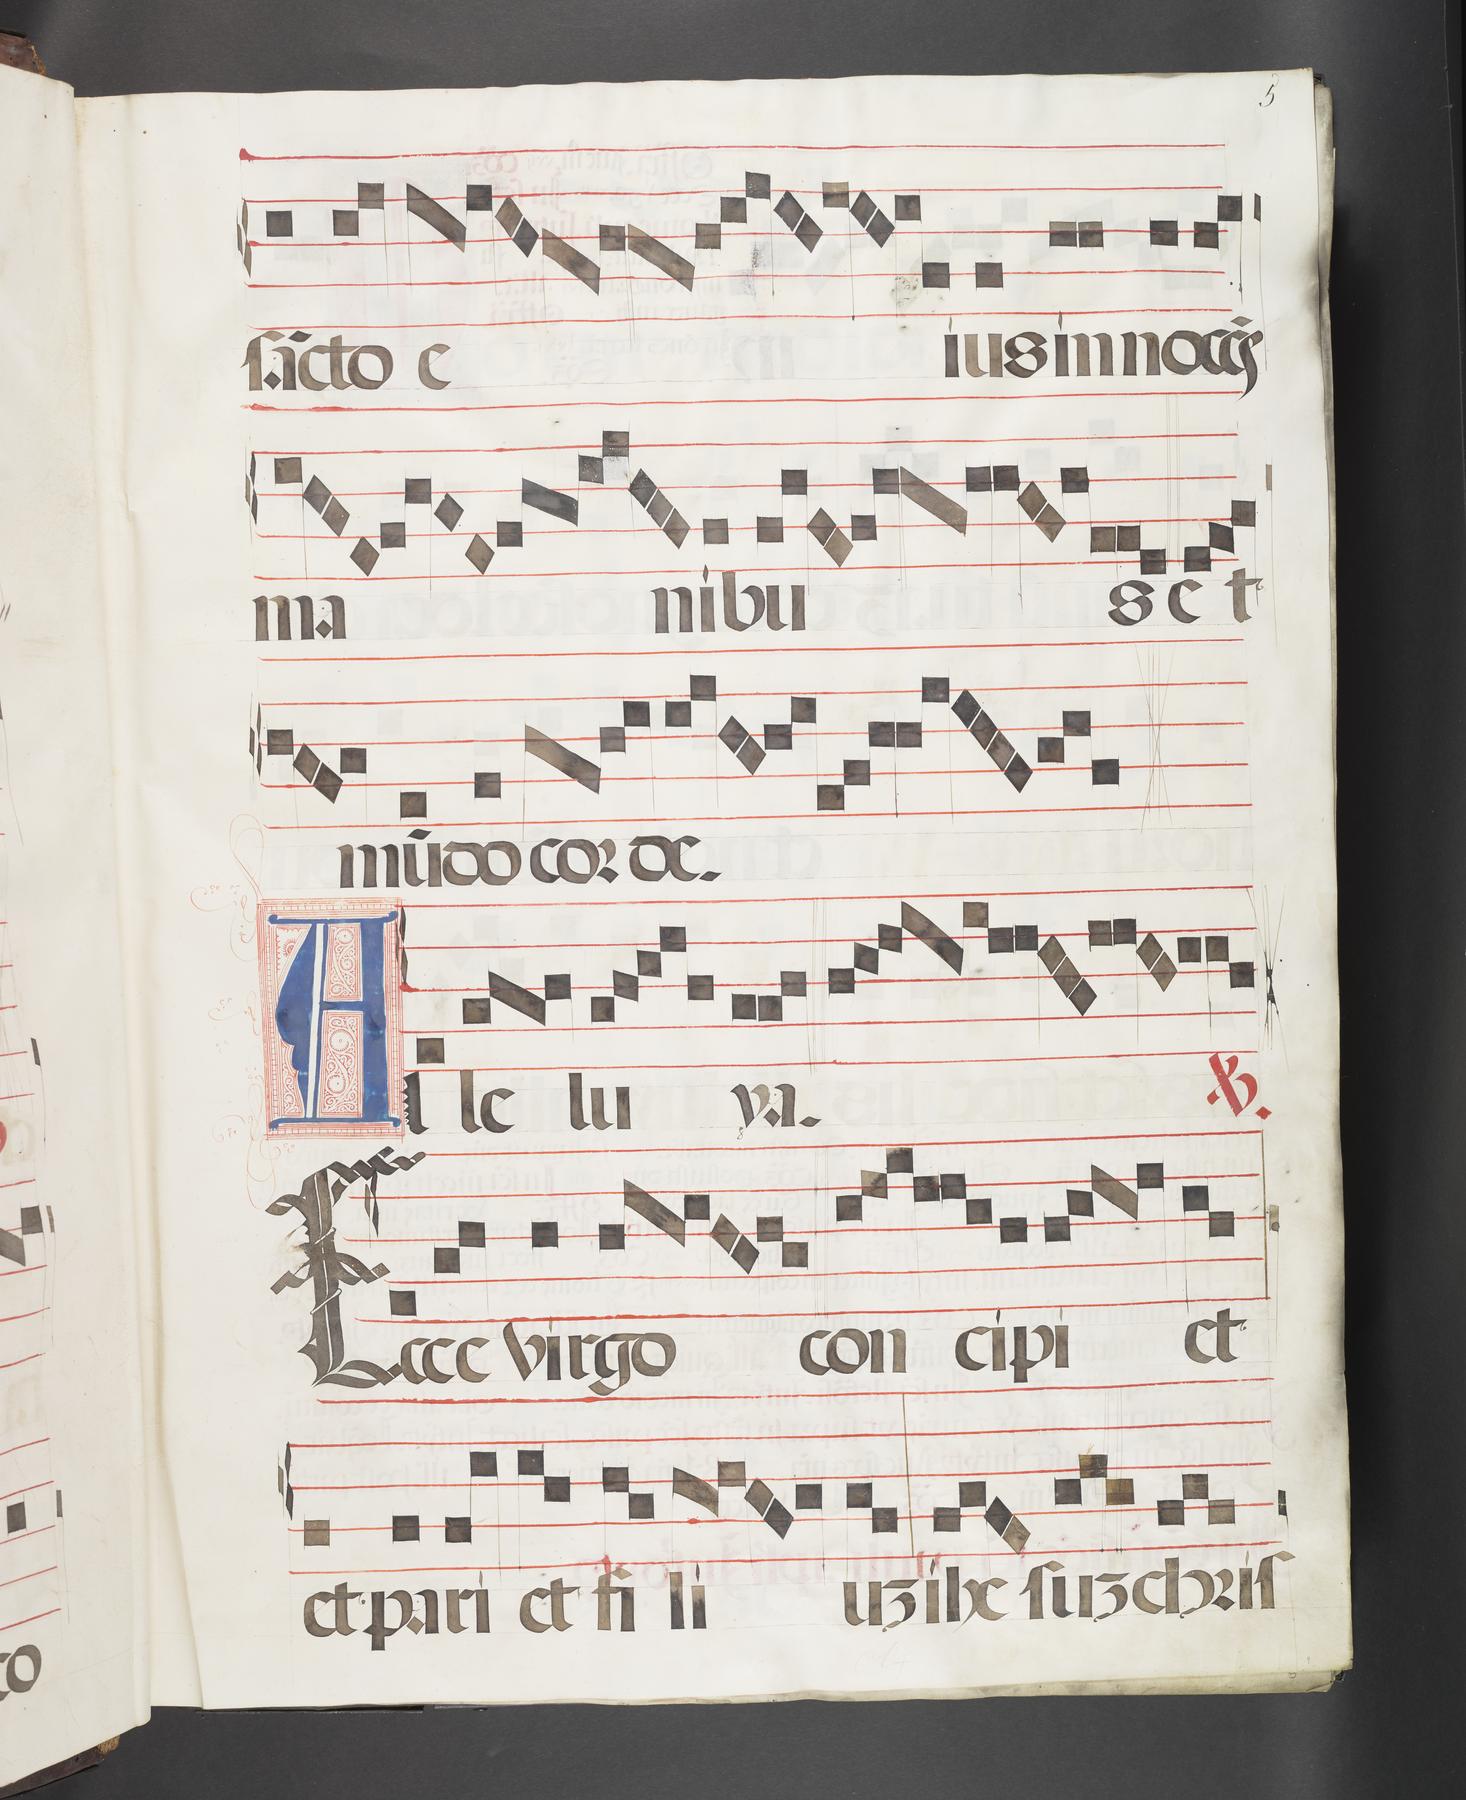 5
sācto e ius in nocēs
ma nibu s e t
mūdo cor de.
A l le lu ya. ℣.
Ecce virgo con cipi et
et pari et fi li uʒ ihe suʒ chris